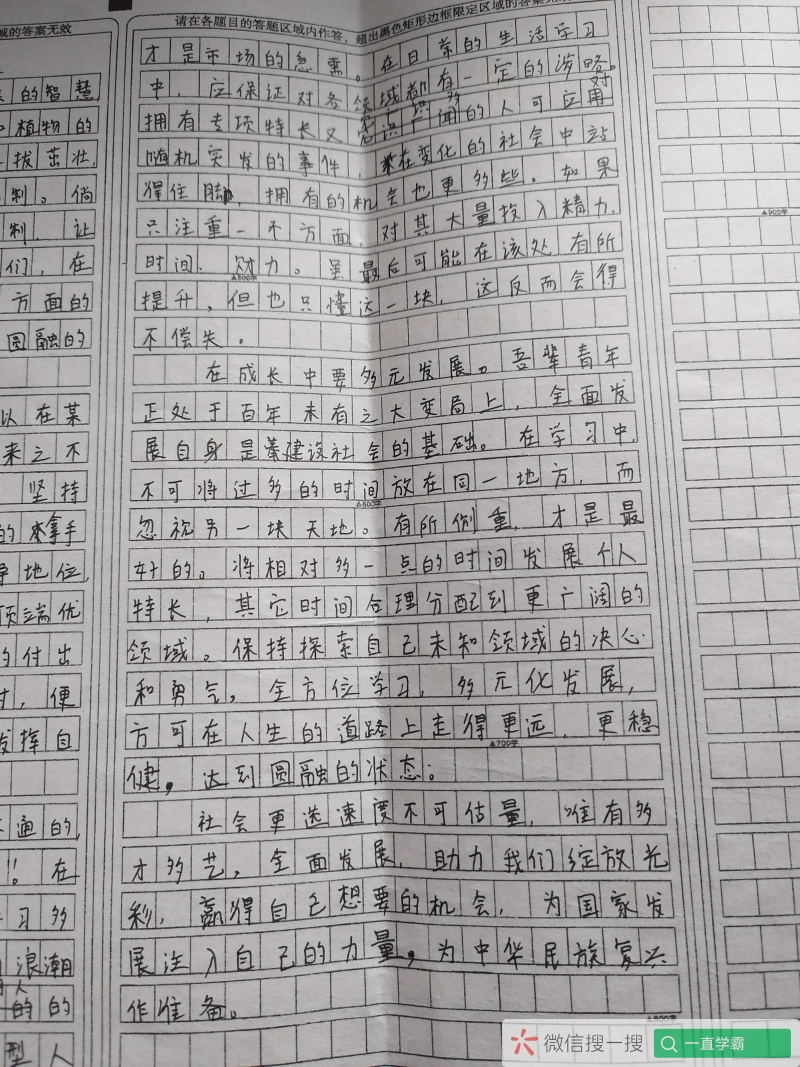 域的答案无效
的智慧
植物的
拔茁壮,
制。倘
制,让
们,在
方面的
圆融的
以在某
来之不
坚持
的拿手
地位,
顶端优
的付出
时,便
发挥自
通的,
!在
习多
浪潮
的的
型人
请在各题目的答题区域内作答,超出黑色矩形边框限定区域的答案无效
才是市场的急需。在日常的生活学习
中,应保证对各领域都有一定的涉略。
拥有专项特长又多识广闻的人可应用对
随机突发的事件,在变化的社会中站
得住脚,拥有的机会也更多些。如果
只注重一不方面,对其大量投入精力、
时间、财力。虽最后可能在该处有所
▲500字
提升,但也只懂这一块,这反而会得
不偿失。
在成长中要多元发展。吾辈青年
正处于百年未有之大变局上,全面发
展自身是建设社会的基础。在学习中,
不可将过多的时间放在同一地方,而
▲600字
忽视另一块天地。有所侧重,才是最
好的。将相对多一点的时间发展个人
特长,其它时间合理分配到更广阔的
领域。保持探索自己未知领域的决心
和勇气,全方位学习,多元化发展,
方可在人生的道路上走得更远,更稳
▲700字
健,达到圆融的状态。
社会更迭速度不可估量,唯有多
才多艺,全面发展,助力我们绽放光
彩,赢得自己想要的机会,为国家发
展注入自己的力量,为中华民族复兴
作准备。
▲800字
▲900字
微信搜一搜
一直学霸